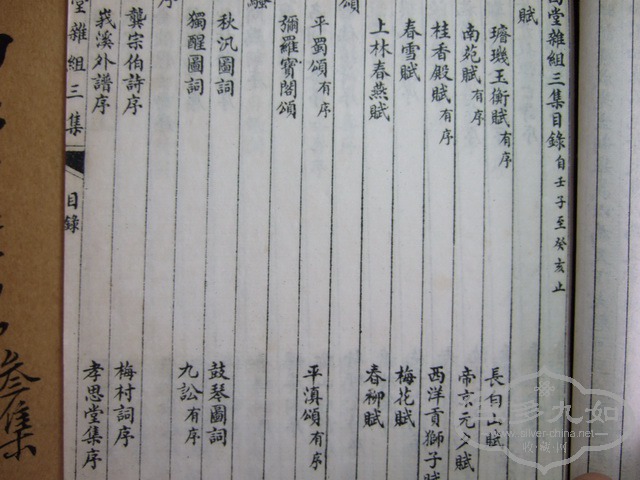 堂雜組三集目錄自壬子至癸亥止
賦
璿璣玉衡賦有序
長白山賦
南苑賦有序
帝京元夕賦
桂香殿賦有序
西洋貢獅子賦
春雪賦
梅花賦
上林春燕賦
春柳賦
頌
平蜀頌有序
平滇頌有序
彌羅寶閣頌
騷
秋汎圖詞
鼓琴圖詞
獨醒圖詞
九訟有序
序
龔宗伯詩序
梅村詞序
峩溪外譜序
孝思堂集序
堂雜組三集
目錄
叄集
多九如
www.silver-china.net
收藏网